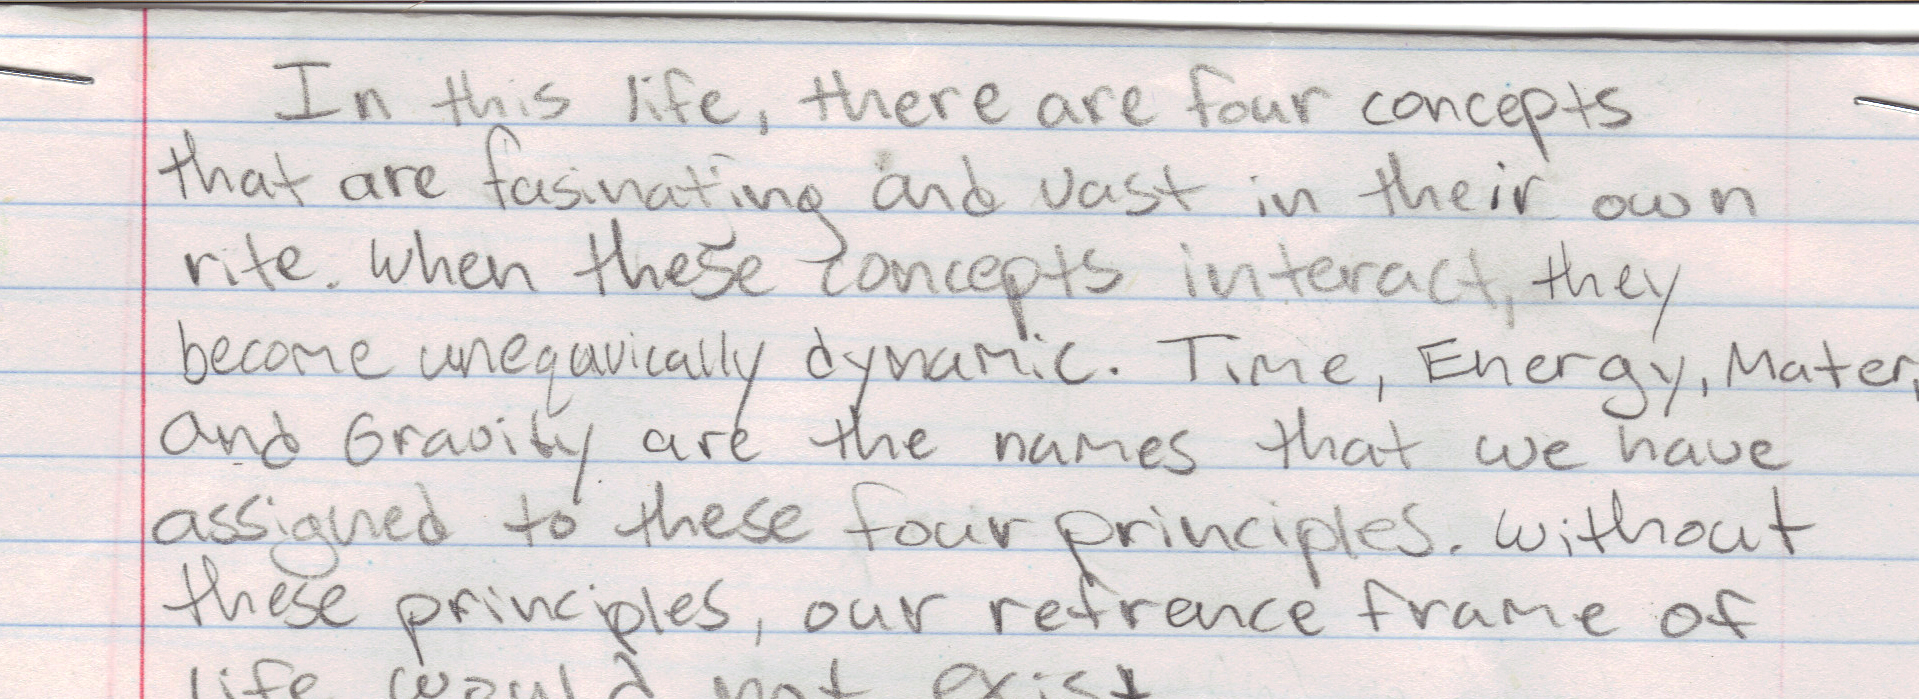 In this life, there are four concepts
that are fasinating and vast in their own
rite. When these concepts interact, they
become uneqavically dynamic. Time, Energy, Mater,
and Gravity are the names that we have
assigned to these four principles. Without
these principles, our refrence frame of
life would not exist